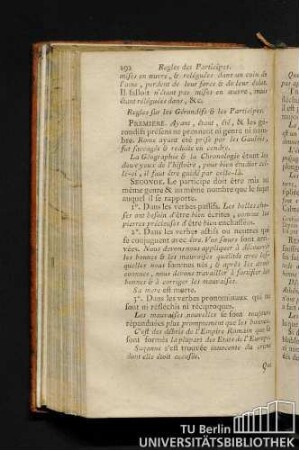 292 Regles des Participes.
mises en œuvre, & reléguées dans un coin de
l'ame, perdent de leur force & de leur éclat.
Il falloit n'étant pas mises en œuvre, mais
étant reléguées dans, &c.
Regles sur les Gérondifs & les Participes.
PREMIERE. Ayant, étant, été, & les gé-
rondifs présens ne prennent ni genre ni nom-
bre. Rome ayant été prise par les Gaulois,
fut saccagée & réduite en cendre.
La Géographie & la Chronologie étant les
deux yeux de l'histoire, pour bien étudier cel-
le-ci, il faut être guidé par celle-là.
SECONDE. Le participe doit être mis au
même genre & au même nombre que le sujet
auquel il se rapporte.
1°. Dans les verbes passifs. Les belles cho-
ses ont besoin d'être bien écrites, comme les
pierres précieuses d'être bien enchassées.
2°. Dans les verbes actifs ou neutres qui
se conjuguent avec être. Vos sœurs sont arri-
vées. Nous devons nous appliquer à découvrir
les bonnes & les mauvaises qualités avec les-
quelles nous sommes nés; & après les avoir
connues, nous devons travailler à fortifier les
bonnes & à corriger les mauvaises.
Sa mere est morte.
3°. Dans les verbes pronominaux qui ne
sont ni réfléchis ni réciproques.
Les mauvaises nouvelles se sont toujours
répandues plus promptement que les bonnes.
C'est des débris de l'Empire Romain que se
sont formés la plupart des Etats de l'Europe.
Suzanne s'est trouvée innocente du crime
dont elle étoit accusée.
TU Berlin
UNIVERSITÄTSBIBLIOTHEK